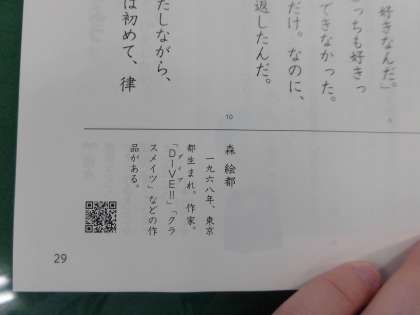 好きなんだ」
っちも好きっ
できなかった。
だけ。なのに、
返したんだ。
たしながら、
は初めて、律
10
森 絵都
一九六八年、東京
都生まれ。作家。
「DIVE!!」「クラ
スメイツ」などの作
品がある。
29